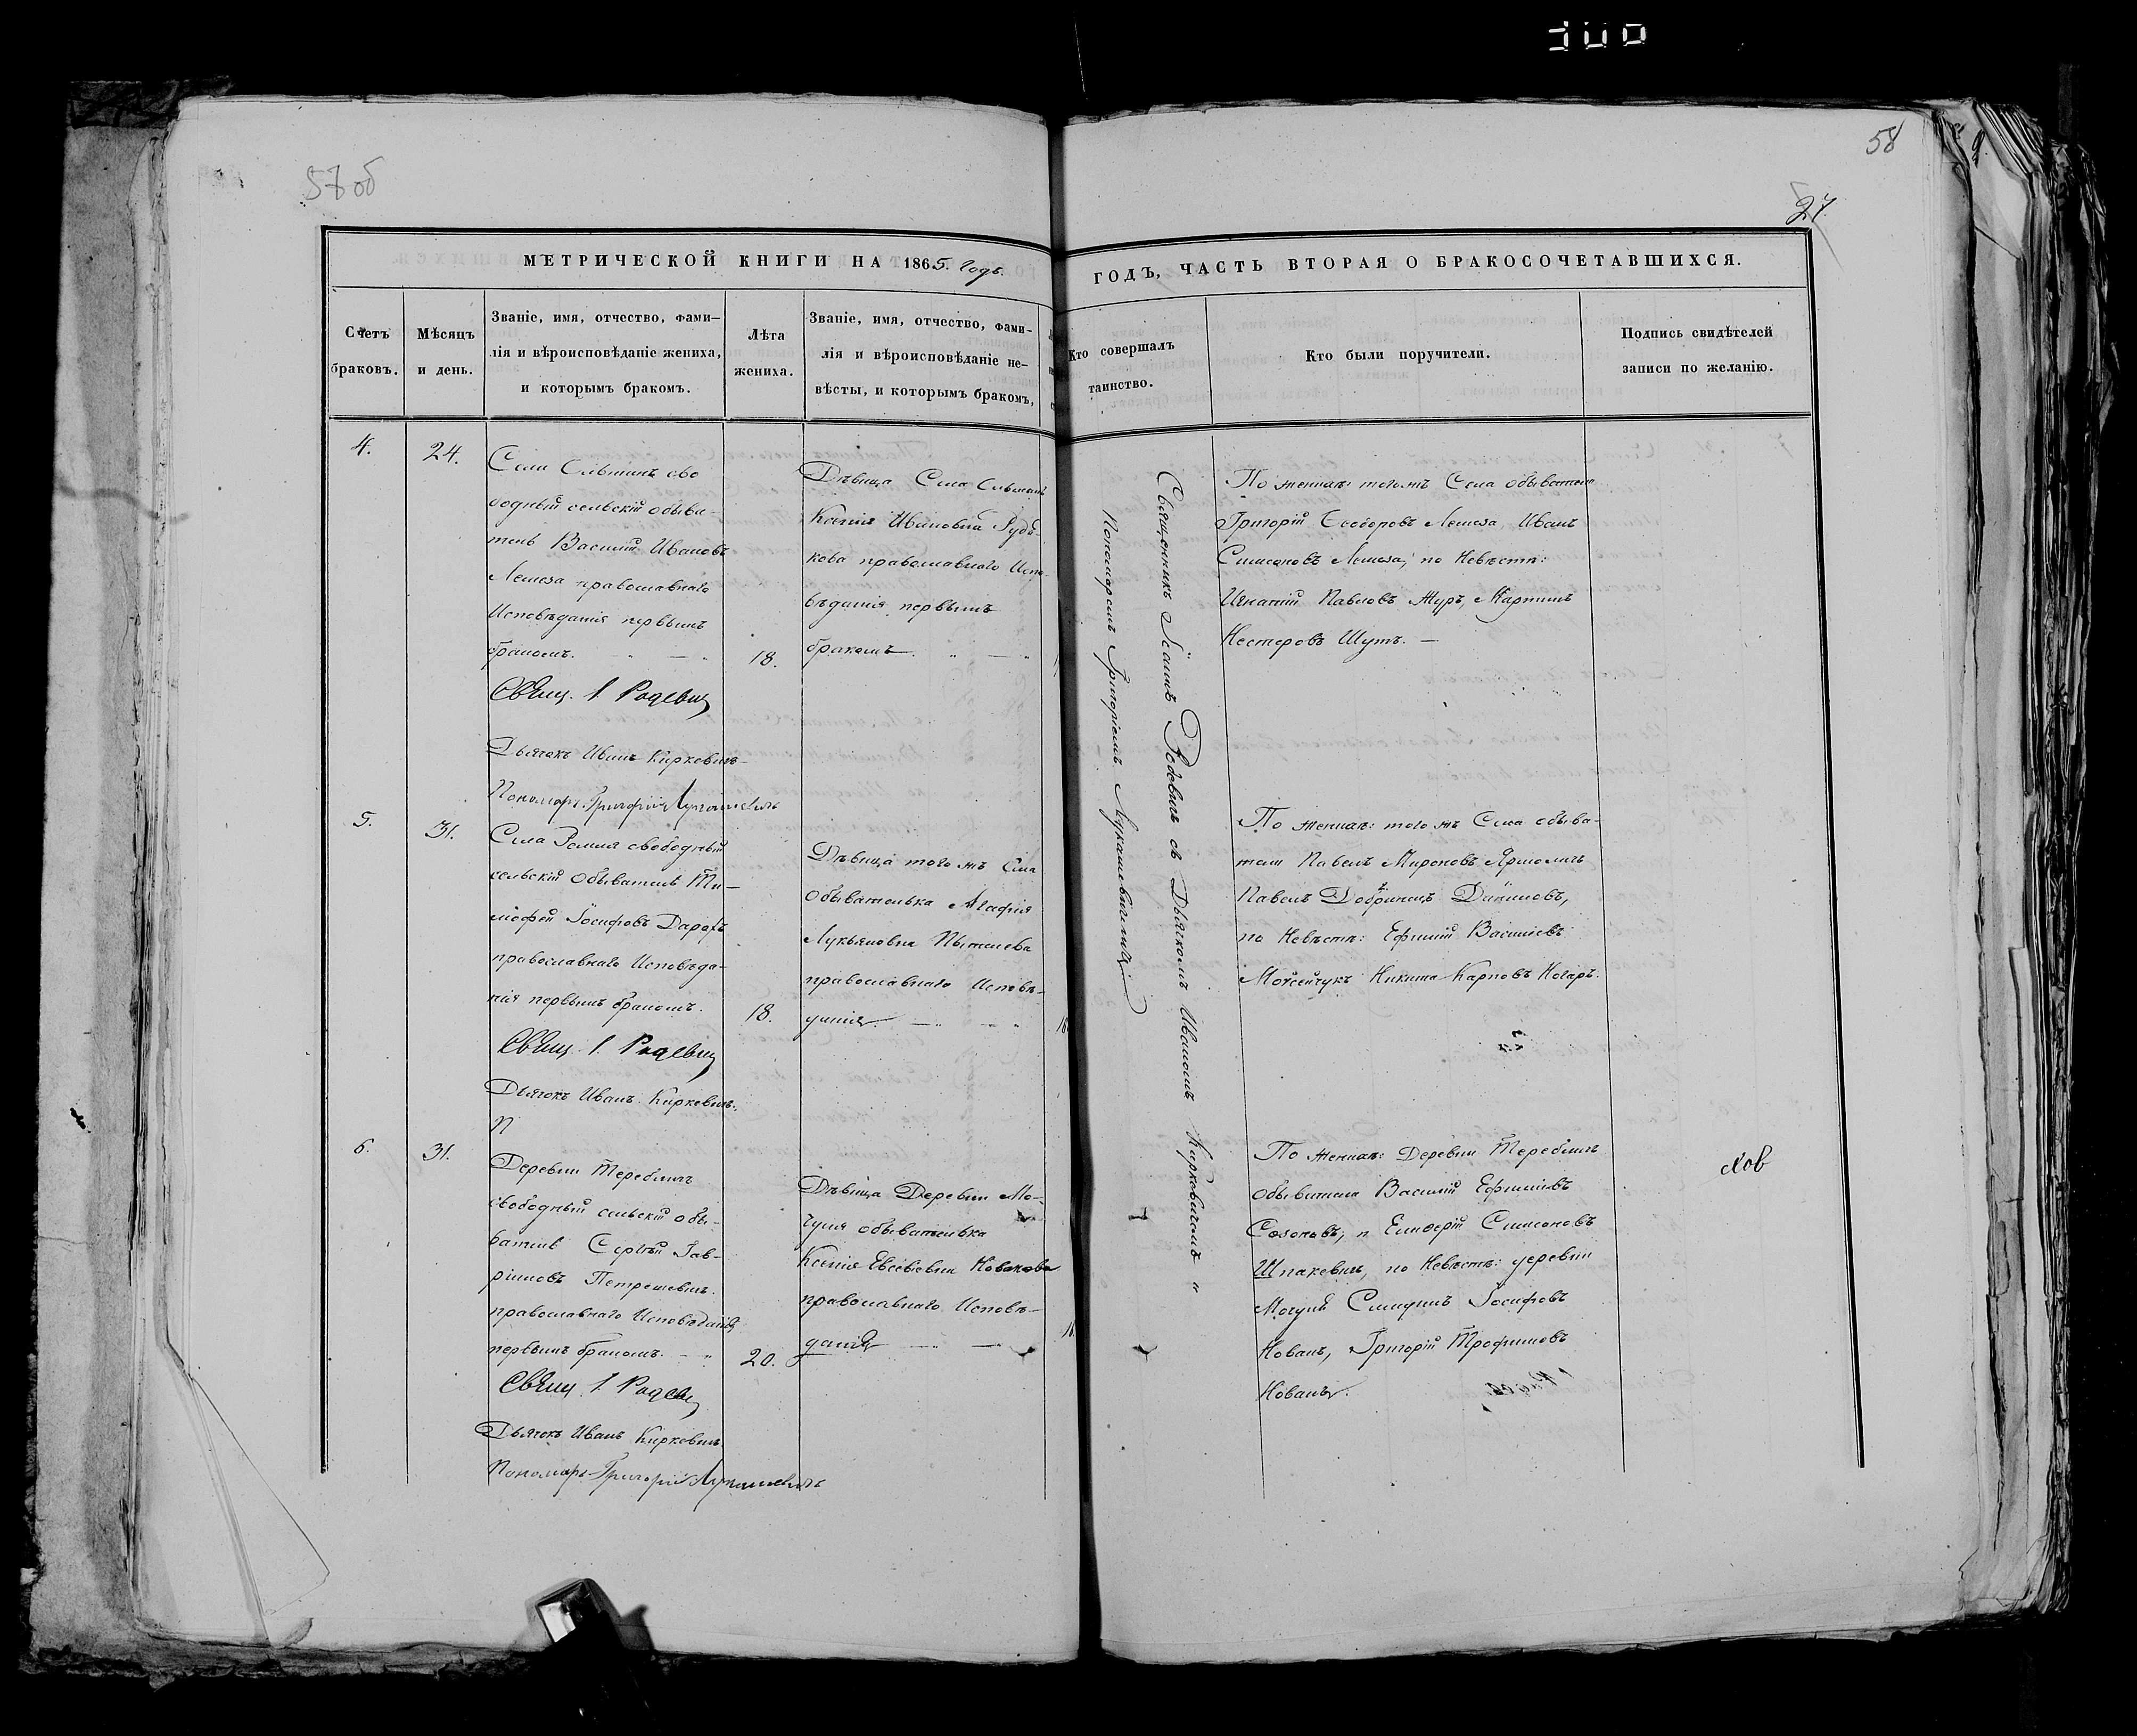 300
57 об
58
27.
МЕТРИЧЕСКОЙ КНИГИ НА 1865. Годъ.
ГОДЪ, ЧАСТЬ ВТОРАЯ О БРАКОСОЧЕТАВШИХСЯ.
Счетъ
браковъ.
Мѣсяцъ
и день.
Званіе, имя, отчество, фами-
лія и вѣроисповѣданіе жениха,
и которымъ бракомъ.
Лѣта
жениха.
Званіе, имя, отчество, фами-
лія и вѣроисповѣданіе не-
вѣсты, и которымъ бракомъ,
Кто совершалъ
таинство.
Кто были поручители.
Подпись свидѣтелей
записи по желанію.
4.
24.
Села сво
бодный сельскій обыва-
тель Василій Ивановъ
Лемеза православнаго
Исповѣданія первымъ
бракомъ.
18.
Свящ. І. Родевич
Дьячокъ Иванъ Киркевичъ
Пономарь Григорій Лукашевичъ
Дѣвица Села
Ксенія Ивановна Рудь-
кова православнаго Испо-
вѣданія первымъ
бракомъ
Священникъ Іоаннъ Родевичъ съ Дьячкомъ Иваномъ Киркевичемъ и
Пономаремъ Григоріемъ Лукашевичемъ
По женихѣ: тогожъ Села обыватели
Григорій Ѳеодоровъ Лемеза, Иванъ
Симеоновъ Лемеза; по Невѣстѣ:
Игнатій Павловъ Журъ, Мартинъ
Нестеровъ Шутъ. —
5.
31.
Села свободный
сельскій обыватель Ти-
мофей Іосифовъ
православнаго Исповѣда-
нія первымъ бракомъ.
18.
Свящ. І. Родевич
Дьячокъ Иванъ Киркевичъ.
П
Дѣвица того жъ Села
обывателька Агафія
Лукьяновна
православнаго Исповѣ-
данія.
По женихѣ: того жъ Села обыва-
тели Павелъ Мироновъ
Павелъ
по Невѣстѣ: Ефимій Василіевъ
Мойсейчукъ Никита Карповъ
6.
31.
Деревни Теребличъ
свободный сельскій обы-
ватель Сергѣй Гав-
риловъ Петрашевичъ.
православнаго Исповѣданія,
первымъ бракомъ.
20.
Свящ. І. Родевич
Дьячокъ Иванъ Киркевичъ.
Пономарь Григорій Лукашевичъ
Дѣвица Деревни Мо-
чуля обывателька
Ксенія Евсевіевна Новакова
православнаго Исповѣ-
данія
По женихѣ: Деревни Теребличъ
обыватели Василій Ефиміевъ
и Симеоновъ
Шпакевичъ, по Невѣстѣ: деревни
Мочуля Іосифовъ
Новакъ, Григорій Трофимовъ
Новакъ.